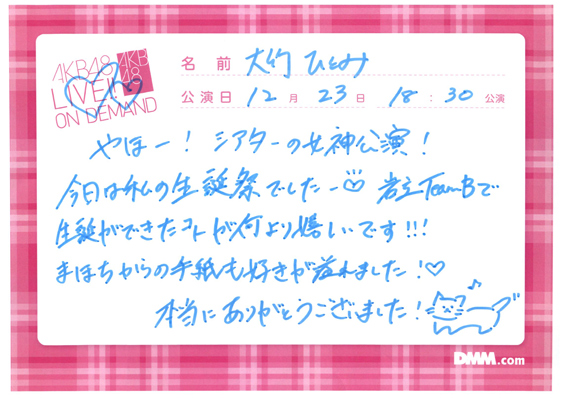 AKB48
LIVE!!
ON DEMAND
AKB
48
名前 大竹 ひとみ
公演日 12月 23日 18:30 公演
やほー! シアターの女神公演!
今日は私の生誕祭でしたー♡ 岩立TeamBで
生誕ができたコトが何より嬉しいです!!!
まほちからの手紙も好きが溢れました!♡
本当にありがとうございました!♪
DMM.com